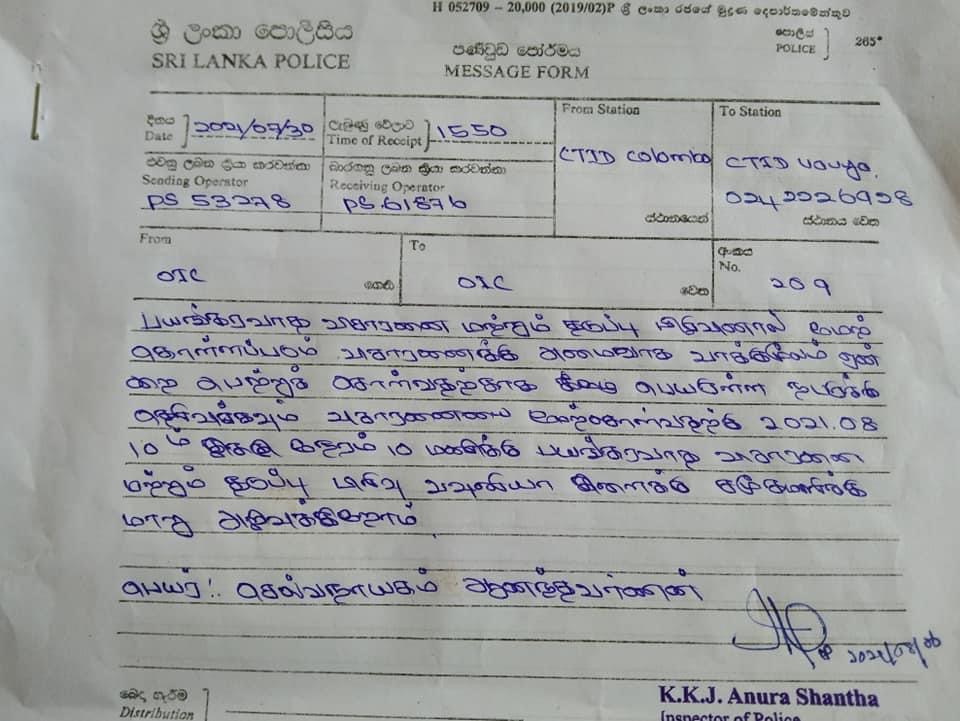 H 052709 – 20,000 (2019/02)P ශ්‍රී ලංකා රජයේ මුද්‍රණ දෙපාර්තමේන්තුව
ශ්‍රී ලංකා පොලීසිය
SRI LANKA POLICE
පණිවුඩ පෝර්මය
MESSAGE FORM
පොලිස්
POLICE
265*
දිනය
Date
2021/07/30
ලැබුණු වේලාව
Time of Receipt
1550
From Station
CTID Colombo
ස්ථානයෙන්
To Station
CTID
0242226928
ස්ථානය වෙත
එවනු ලබන ක්‍රියා කරවන්නා
Sending Operator
PS 53278
භාරගනු ලබන ක්‍රියා කරවන්නා
Receiving Operator
PS 61876
From
OIC
ගෙන්
To
OIC
වෙත
අංකය
No.
209
பயங்கரவாத விசாரணை மற்றும் தடுப்பு பிரிவினால் மேற்
கொள்ளப்படும் விசாரணைக்கு அமைவாக வாக்குமூலம் ஒன்
றை பெற்றுக் கொள்வதற்காக கீழே பெயருள்ள நபருக்கு
தெரிவிக்கவும் விசாரணையை மேற்கொள்வதற்கு 2021.08
10ம் திகதி நேரம் 10 மணிக்கு பயங்கரவாத விசாரணை
மற்றும் தடுப்பு பிரிவு வவுனியா கிளைக்கு சமூகமளிக்கு
மாறு அறிவிக்கிறோம்.
பெயர்:- செல்வநாயகம் ஆனந்தவர்ணன்
2021/08/06
K.K.J. Anura Shantha
Inspector of Police
බෙදා හැරීම
Distribution